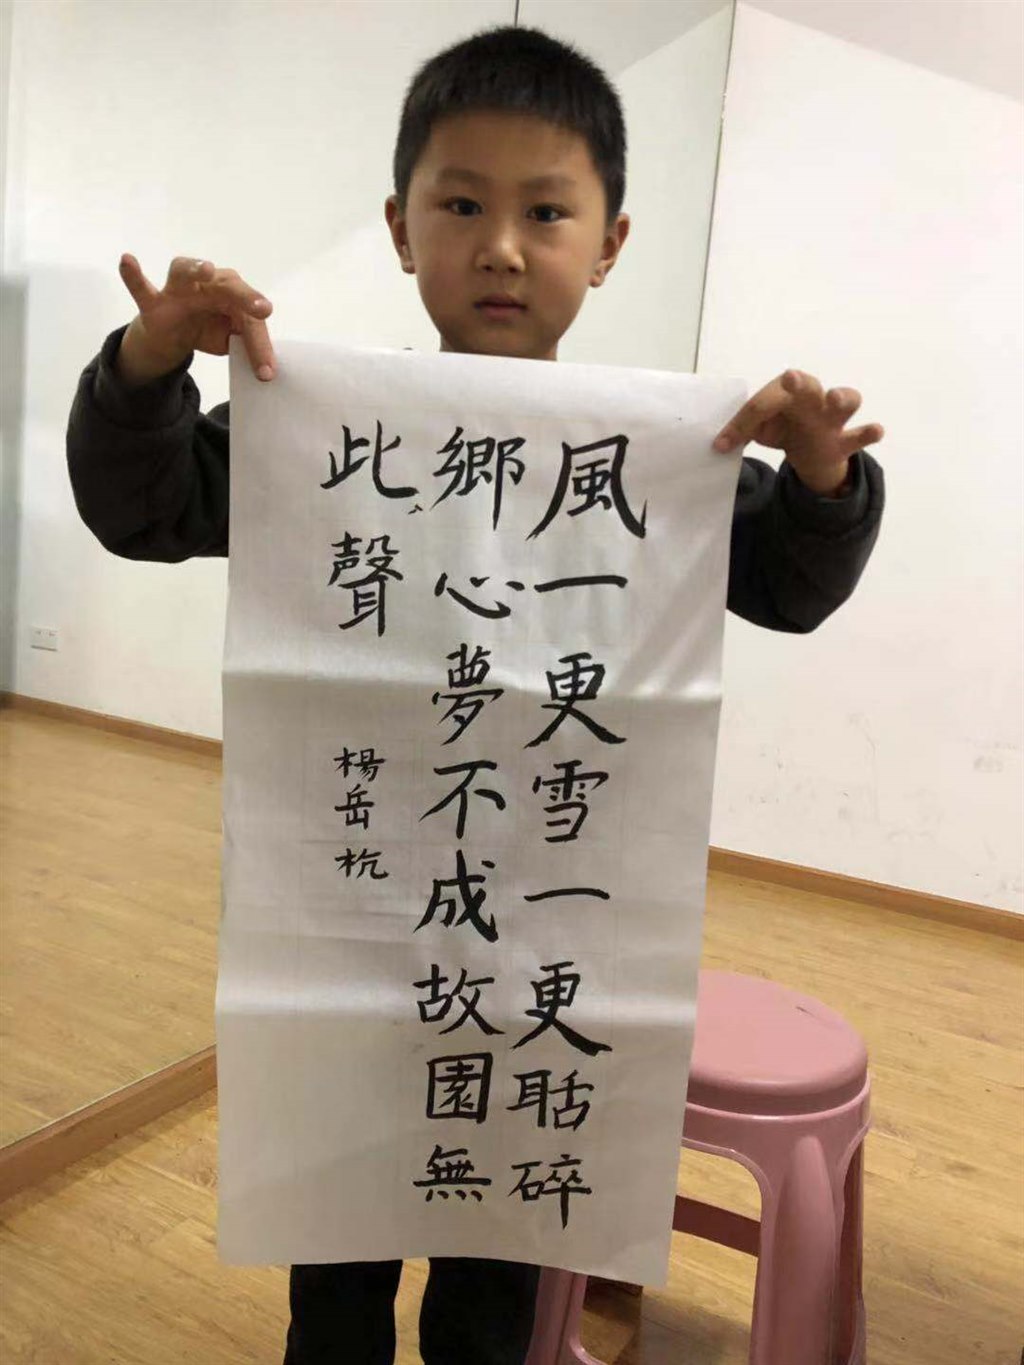 風一更雪一更聒碎
鄉心夢不成故園無
此聲
楊岳杭